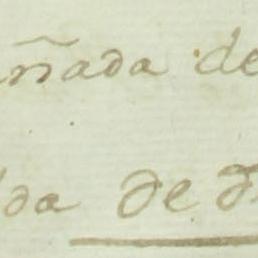 añada de
da de